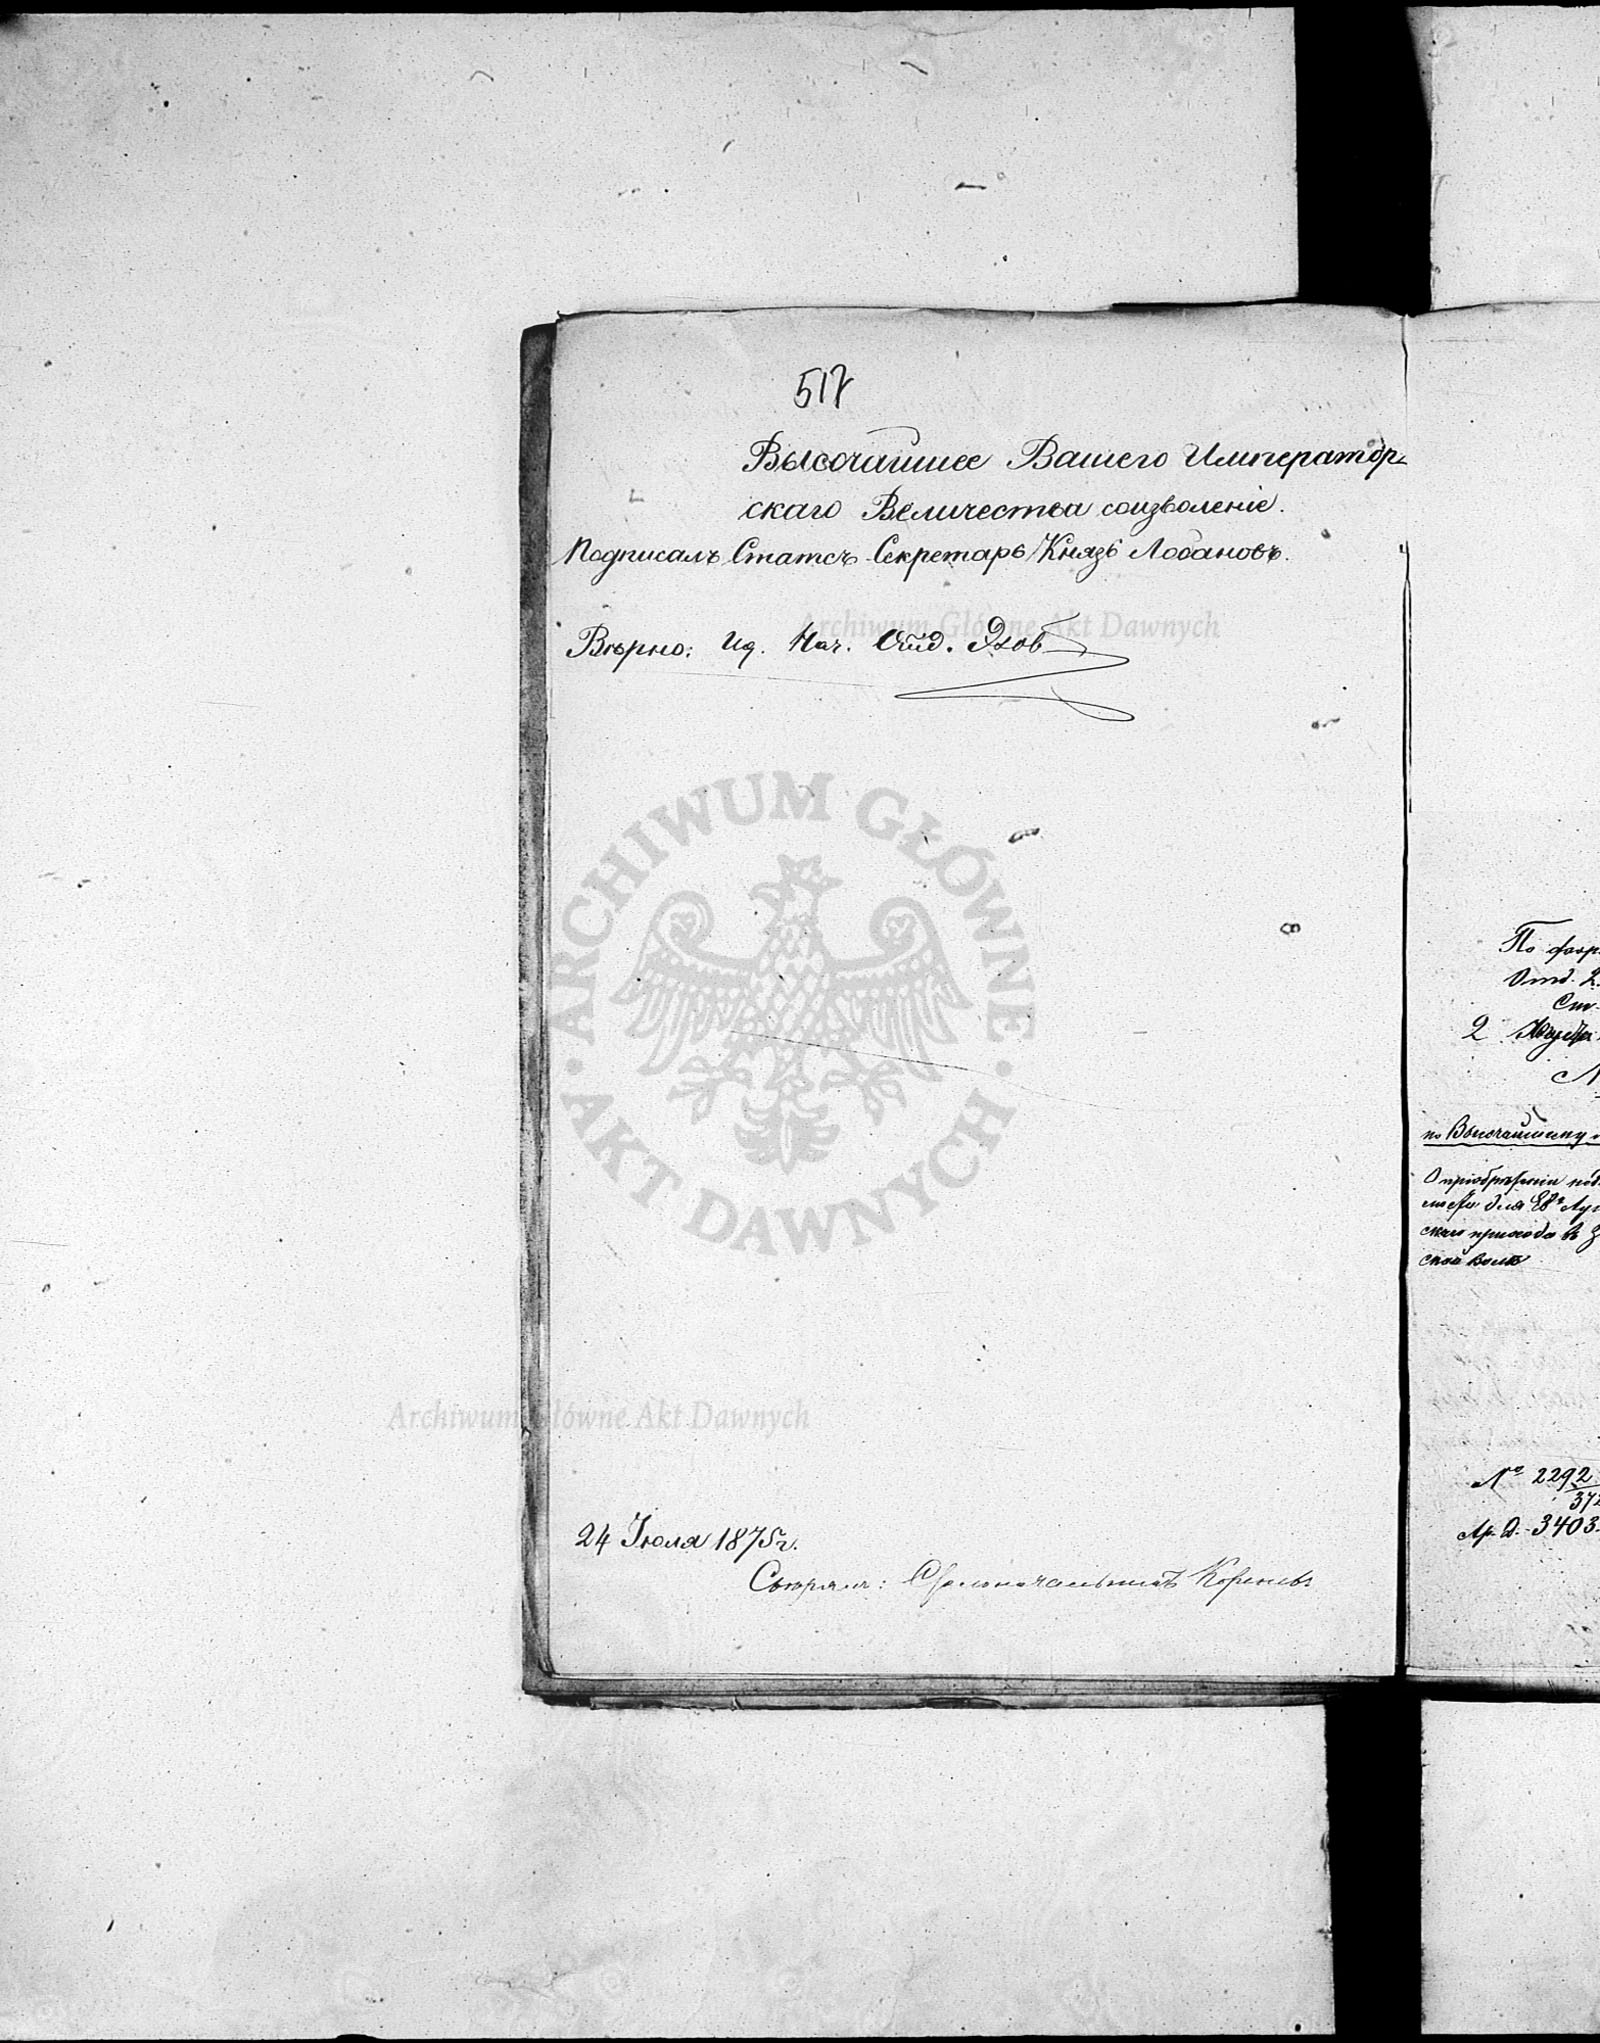 517
Высочайшее Вашего Император-
скаго Величества соизволеніе.
Подписалъ Статсъ Секретарь Князь Лобановъ.
Archiwum Główne Akt Dawnych
Вѣрно: Ид. Нач. Отд.
ARCHIWUM GŁÓWNE
AKT DAWNYCH
Archiwum Główne Akt Dawnych
24 Іюля 1875 г.
Свѣрялъ: Столоначальникъ
По
Отд. 2.
Ст.
2
по Высочайшему
О пріобрѣтеніи
для
скаго прихода въ
ской
№ 2292
372
Ар. Д. 3403.